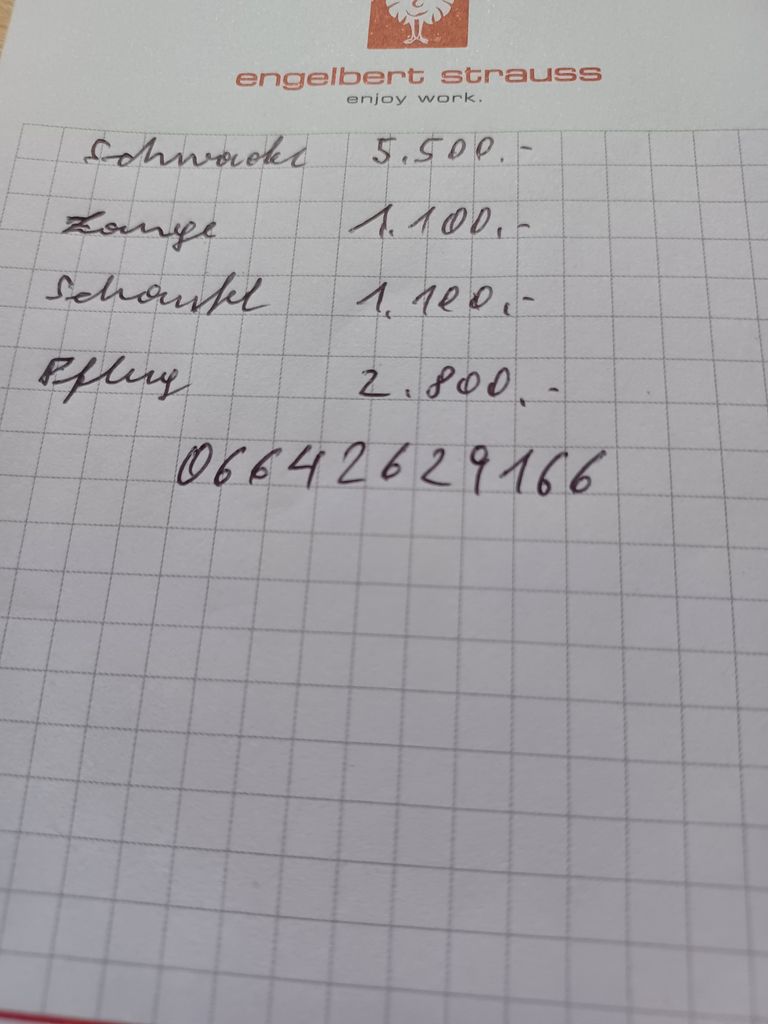 engelbert strauss
enjoy work.
5.500.-
Zange 1.100.-
Schaufel 1.100.-
Pflug 2.800.-
06642629166